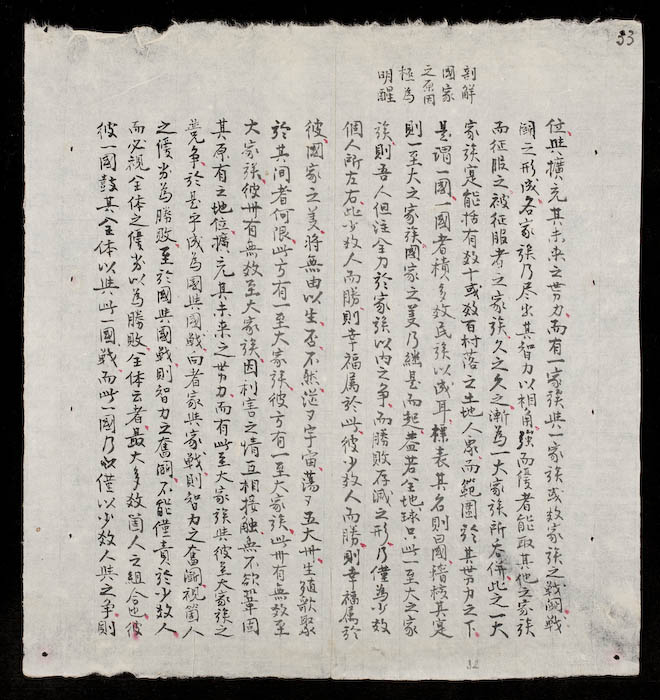 33
剖解
國家
之原因
極為
明醒
位與擴充其未来之势力而有一家族與一家族或数家族之戰鬪戰
鬪之形成名家族乃尽出其智力以相角強而優者能取其他之家族
而征服之被征服者之家族久之久之漸為一大家族所吞併此之一大
家族寔能括有数十或数百村落之土地人衆而範圍於其势力之下
是謂一國一國者積多数民族以成耳標表其名則曰國稽核其寔
則一至大之家族國家之義乃継是而起蓋若全地球只此一至大之家
族則吾人但注全力於家族以内之争而勝敗存滅之形乃僅為少数
個人所左右此少数人而勝則幸福属於此彼少数人而勝則幸福属於
彼國家之義将無由以生否不然茫々宇宙蕩々五大卅生殖歌聚
於其间者何限此方有一至大家族彼方有一至大家族此卅有無数至
大家族彼卅有無数至大家族因利害之情互相接触無不欲鞏固
其原有之地位擴充其未来之势力而有此至大家族與彼至大家族之
競争於是乎成為國與國戰向者家與家戰則智力之奮鬪視箇人
之優劣為勝敗至於國與國戰則智力之奮鬪不能僅責於少数人
而必視全体之優劣以為勝敗全体云者最大多数箇人之組合也彼
彼一國鼓其全体以與此一國戰而此一國乃以僅以少数人與之争則
32